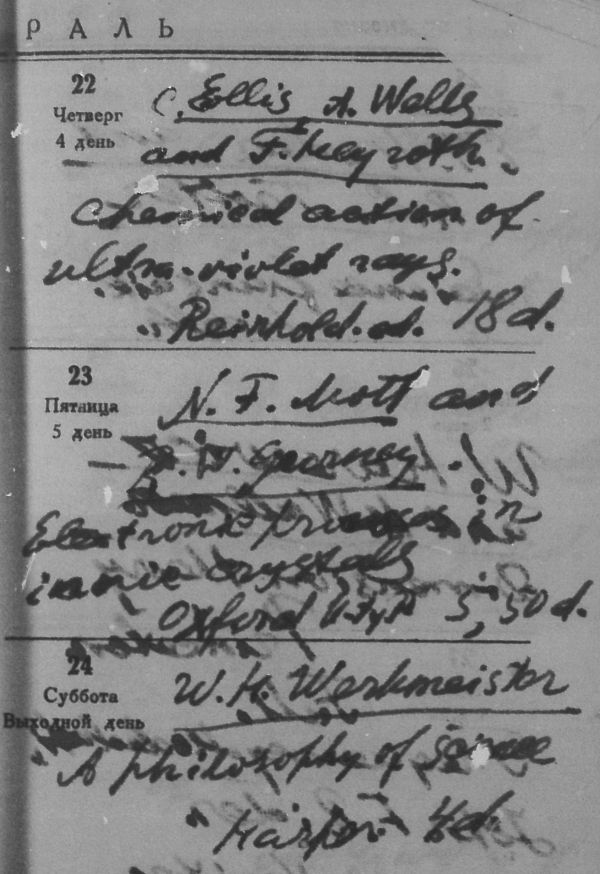 РАЛЬ
22
Четверг
4 день
C. Ellis, A. Wells
and F. Heyroth.
Chemical action of
ultra-violet rays.
Reinhold. ed. 18 d.
23
Пятница
5 день
N. F. Mott and
R. W. Gurney
Electronic proceses in
ionic crystals
Oxford 5,50 d.
24
Суббота
Выходной день
W. H. Werkmeister
A philosophy of science
Harper 4 d.